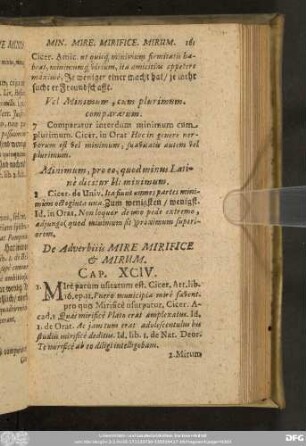 MIN. MIRE. MIRIFICE. MIRUM. 161
Cicer. Amic. ut quisq; minimum firmitatis ha-
beat, minimumq; virium, ita amicitias appetere
maximè. Je weniger einer macht hat / je mehr
sucht er Freundschafft.
Vel Minimum, cum plurimum,
comparatum.
7 Comparatur interdum minimum cum
plurimum. Cicer. in Orat Hoc in genere ner-
vorum est vel minimum, suavitatis autem vel
plurimum.
Minimum, pro eo, quod minus Lati-
nè dicitur ad minimum.
8 Cicer. de Univ. Ita sunt omnes partes mini-
mum octoginta una. Zum wenigsten / wenigst.
Id. in Orat. Non loquor de uno pede extremo,
adjungo, quod minimum sit proximum superi-
orem.
De Adverbiis MIRE MIRIFICE
& MIRUM.
CAP. XCIV.
1. Mirè parum usitatum est. Cicer. Att. lib.
16. epist. Puero municipia mirè favent.
pro quo Mirificè usurpatur. Cicer. A-
cad. 1. Quos mirificè Plato erat amplexatus. Id.
1. de Orat. Ac jam tum erat adolescentulus his
studiis mirificè deditus. Id. lib. 1. de Nat. Deor.
Te mirificè ab eo diligi intelligebam.
2. Mirum